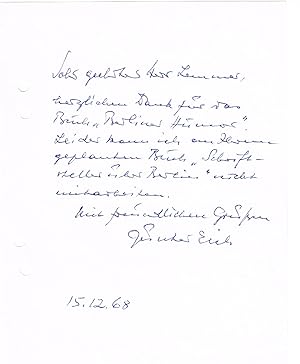 Sehr geehrter Herr Lemmer,
herzlichen Dank für das
Buch „Berliner Humor“.
Leider kann ich an Ihrem
geplanten Buch „Schrift-
steller über Berlin“ nicht
mitarbeiten.
Mit freundlichen Grüßen
Günter Eich
15.12.68